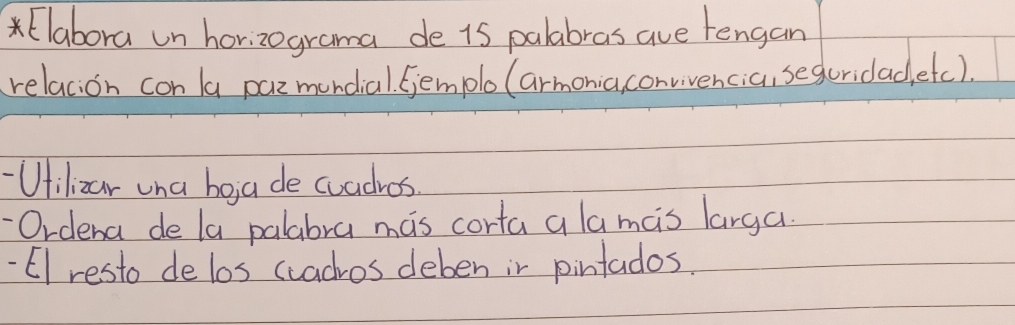 *Elabora un horizograma de 15 palabras que tengan
relación con la paz mundial. Ejemplo (armonia,convivencia, seguridad,etc).
-Utilizar una hoja de cuadros.
-Ordena de la palabra más corta a la más larga.
-El resto de los cuadros deben ir pintados.